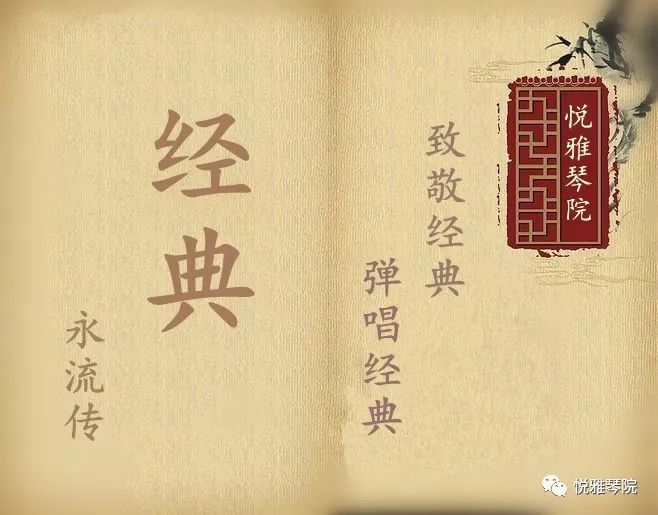 悦雅琴院
致敬经典
弹唱经典
经典
永流传
悦雅琴院